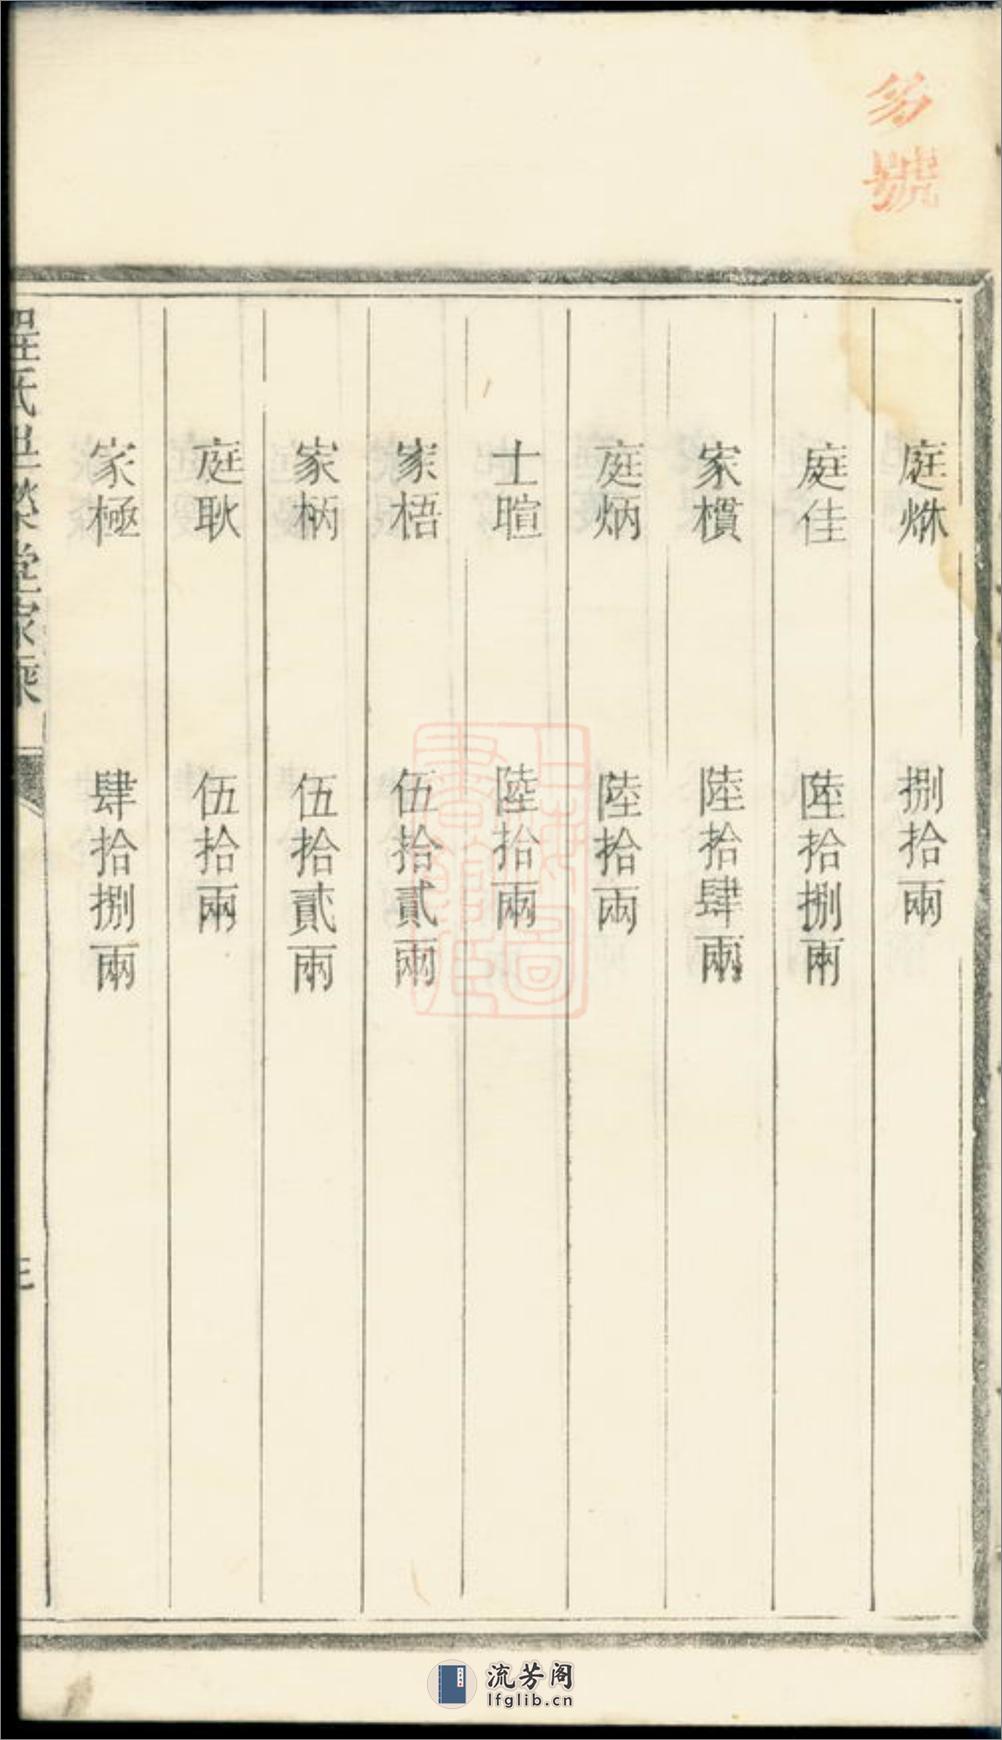 庭烌 捌拾兩
庭佳 陸拾捌兩
家樌 陸拾肆兩
庭炳 陸拾兩
士暄 陸拾兩
家梧 伍拾貳兩
家柄 伍拾貳兩
庭耿 伍拾兩
家極 肆拾捌兩
程氏世榮堂家乘
號
上海圖書館藏
流芳阁
lfglib.cn